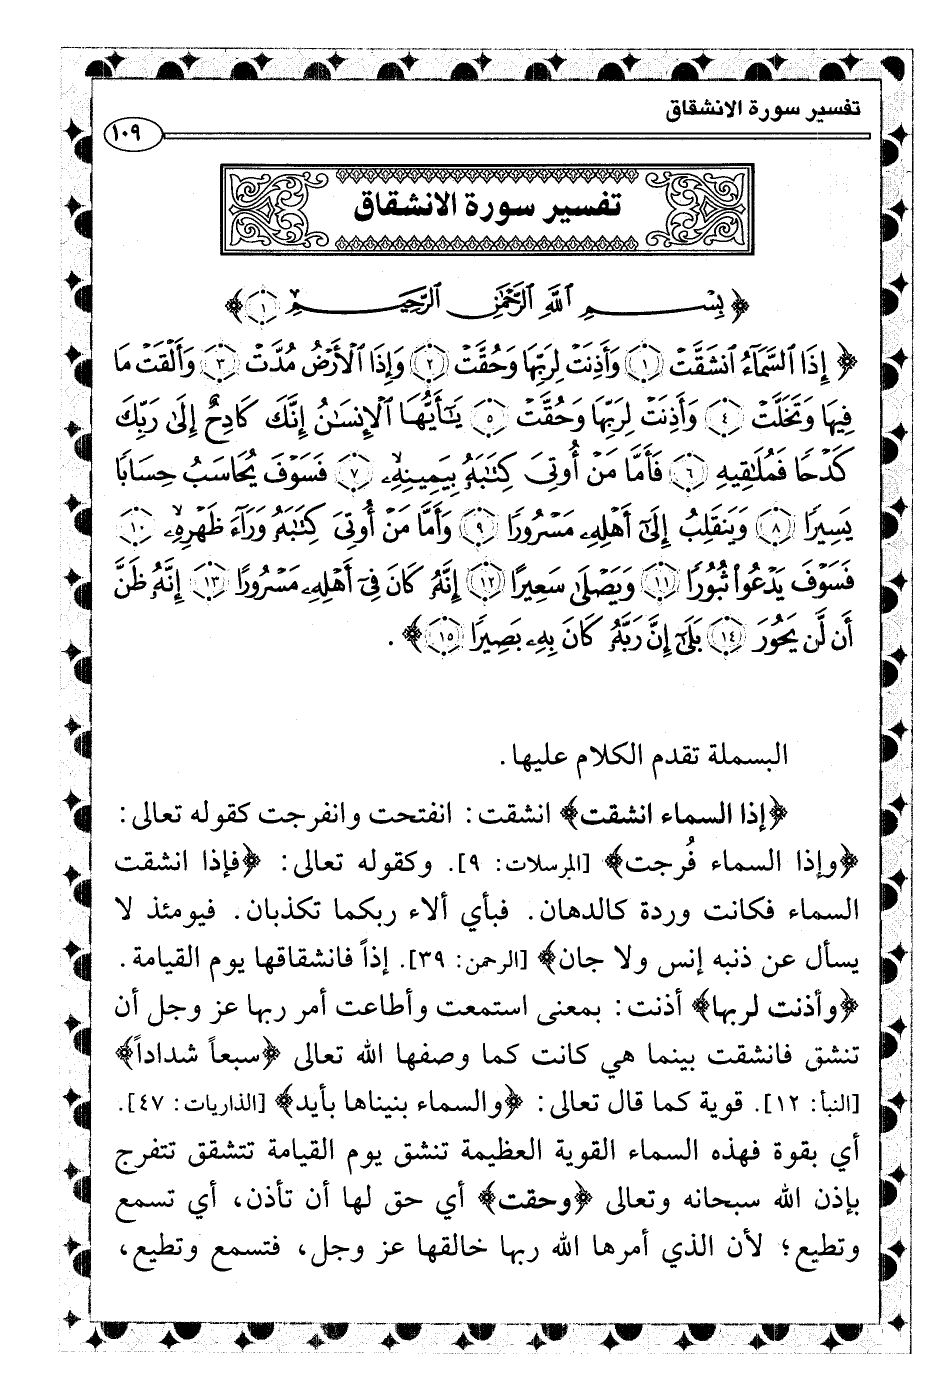 تفسير سورة الانشقاق
١٠٩
تفسير سورة الانشقاق
﴿ بِسْمِ ٱللَّهِ ٱلرَّحْمَٰنِ ٱلرَّحِيمِ ١ ﴾
﴿ إِذَا ٱلسَّمَآءُ ٱنشَقَّتْ ١ وَأَذِنَتْ لِرَبِّهَا وَحُقَّتْ ٢ وَإِذَا ٱلْأَرْضُ مُدَّتْ ٣ وَأَلْقَتْ مَا
فِيهَا وَتَخَلَّتْ ٤ وَأَذِنَتْ لِرَبِّهَا وَحُقَّتْ ٥ يَٰٓأَيُّهَا ٱلْإِنسَٰنُ إِنَّكَ كَادِحٌ إِلَىٰ رَبِّكَ
كَدْحًا فَمُلَٰقِيهِ ٦ فَأَمَّا مَنْ أُوتِىَ كِتَٰبَهُۥ بِيَمِينِهِۦ ٧ فَسَوْفَ يُحَاسَبُ حِسَابًا
يَسِيرًا ٨ وَيَنقَلِبُ إِلَىٰٓ أَهْلِهِۦ مَسْرُورًا ٩ وَأَمَّا مَنْ أُوتِىَ كِتَٰبَهُۥ وَرَآءَ ظَهْرِهِۦ ١٠
فَسَوْفَ يَدْعُوا۟ ثُبُورًا ١١ وَيَصْلَىٰ سَعِيرًا ١٢ إِنَّهُۥ كَانَ فِىٓ أَهْلِهِۦ مَسْرُورًا ١٣ إِنَّهُۥ ظَنَّ
أَن لَّن يَحُورَ ١٤ بَلَىٰٓ إِنَّ رَبَّهُۥ كَانَ بِهِۦ بَصِيرًا ١٥ ﴾ .
البسملة تقدم الكلام عليها.
﴿إذا السماء انشقت﴾ انشقت: انفتحت وانفرجت كقوله تعالى:
﴿وإذا السماء فُرجت﴾ [المرسلات: ٩]. وكقوله تعالى: ﴿فإذا انشقت
السماء فكانت وردة كالدهان. فبأي ألاء ربكما تكذبان. فيومئذ لا
يسأل عن ذنبه إنس ولا جان﴾ [الرحمن: ٣٩]. إذاً فانشقاقها يوم القيامة.
﴿وأذنت لربها﴾ أذنت: بمعنى استمعت وأطاعت أمر ربها عز وجل أن
تنشق فانشقت بينما هي كانت كما وصفها الله تعالى ﴿سبعاً شداداً﴾
[النبأ: ١٢]. قوية كما قال تعالى: ﴿والسماء بنيناها بأيد﴾ [الذاريات: ٤٧].
أي بقوة فهذه السماء القوية العظيمة تنشق يوم القيامة تتشقق تتفرج
بإذن الله سبحانه وتعالى ﴿وحقت﴾ أي حق لها أن تأذن، أي تسمع
وتطيع؛ لأن الذي أمرها الله ربها خالقها عز وجل، فتسمع وتطيع،